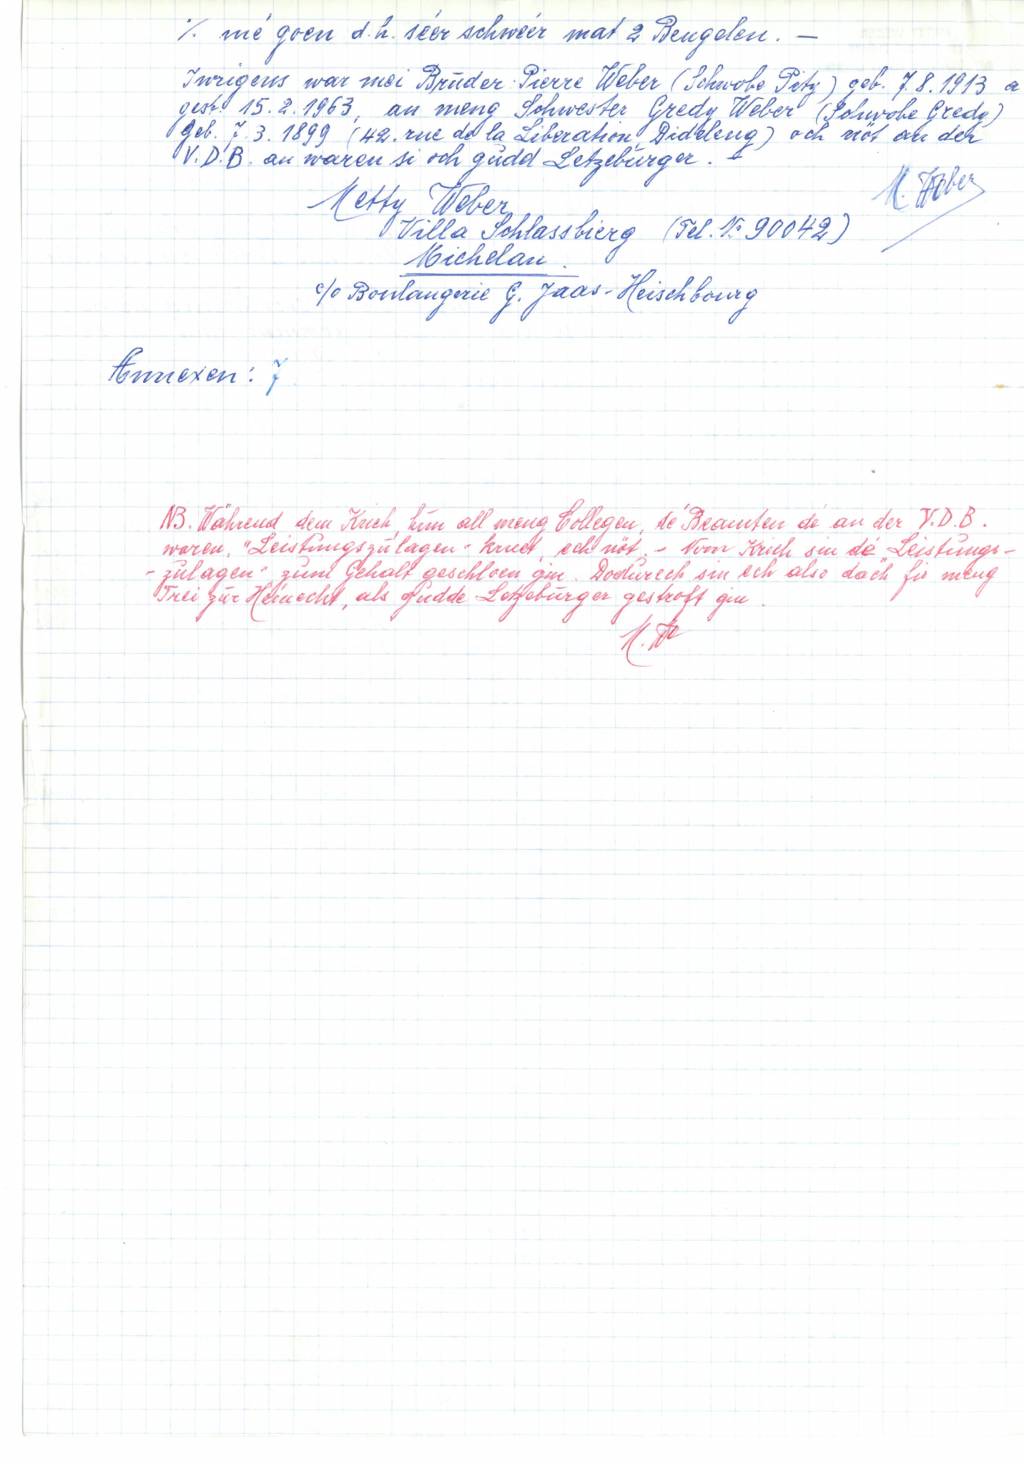 ·/. mé goen d.h. séer schwéer mat 2 Bengelen. —
Iwrigens war mei Brüder Pierre Weber (Schwobe Pitz) geb. 7.8.1913 a
gest. 15.2.1963, an meng Schwester Gredy Weber (Schwobe Gredy)
geb. 7.3.1899 (42. rue de la Liberation Diddeleng) och nöt an der
V.D.B. an waren si och gudd Letzebürger. —
M. Weber
Metty Weber
Villa Schlassbierg (Tel. No 90042)
Michelau.
c/o Boulangerie G. Jaas-Heischbourg
Annexen: 7
NB. Während dem Krich, hun all meng Collegen, dé Beamten dé an der V.D.B.
waren, "Leistungszülagen" krud, ech nöt. - Vom Krich sin dé "Leistungs-
-zulagen" zum Gehalt geschloen gin. Dodurech sin ech also dach fir meng
Trei zur Hémecht, als gudde Letzebürger gestroft gin.
M. W